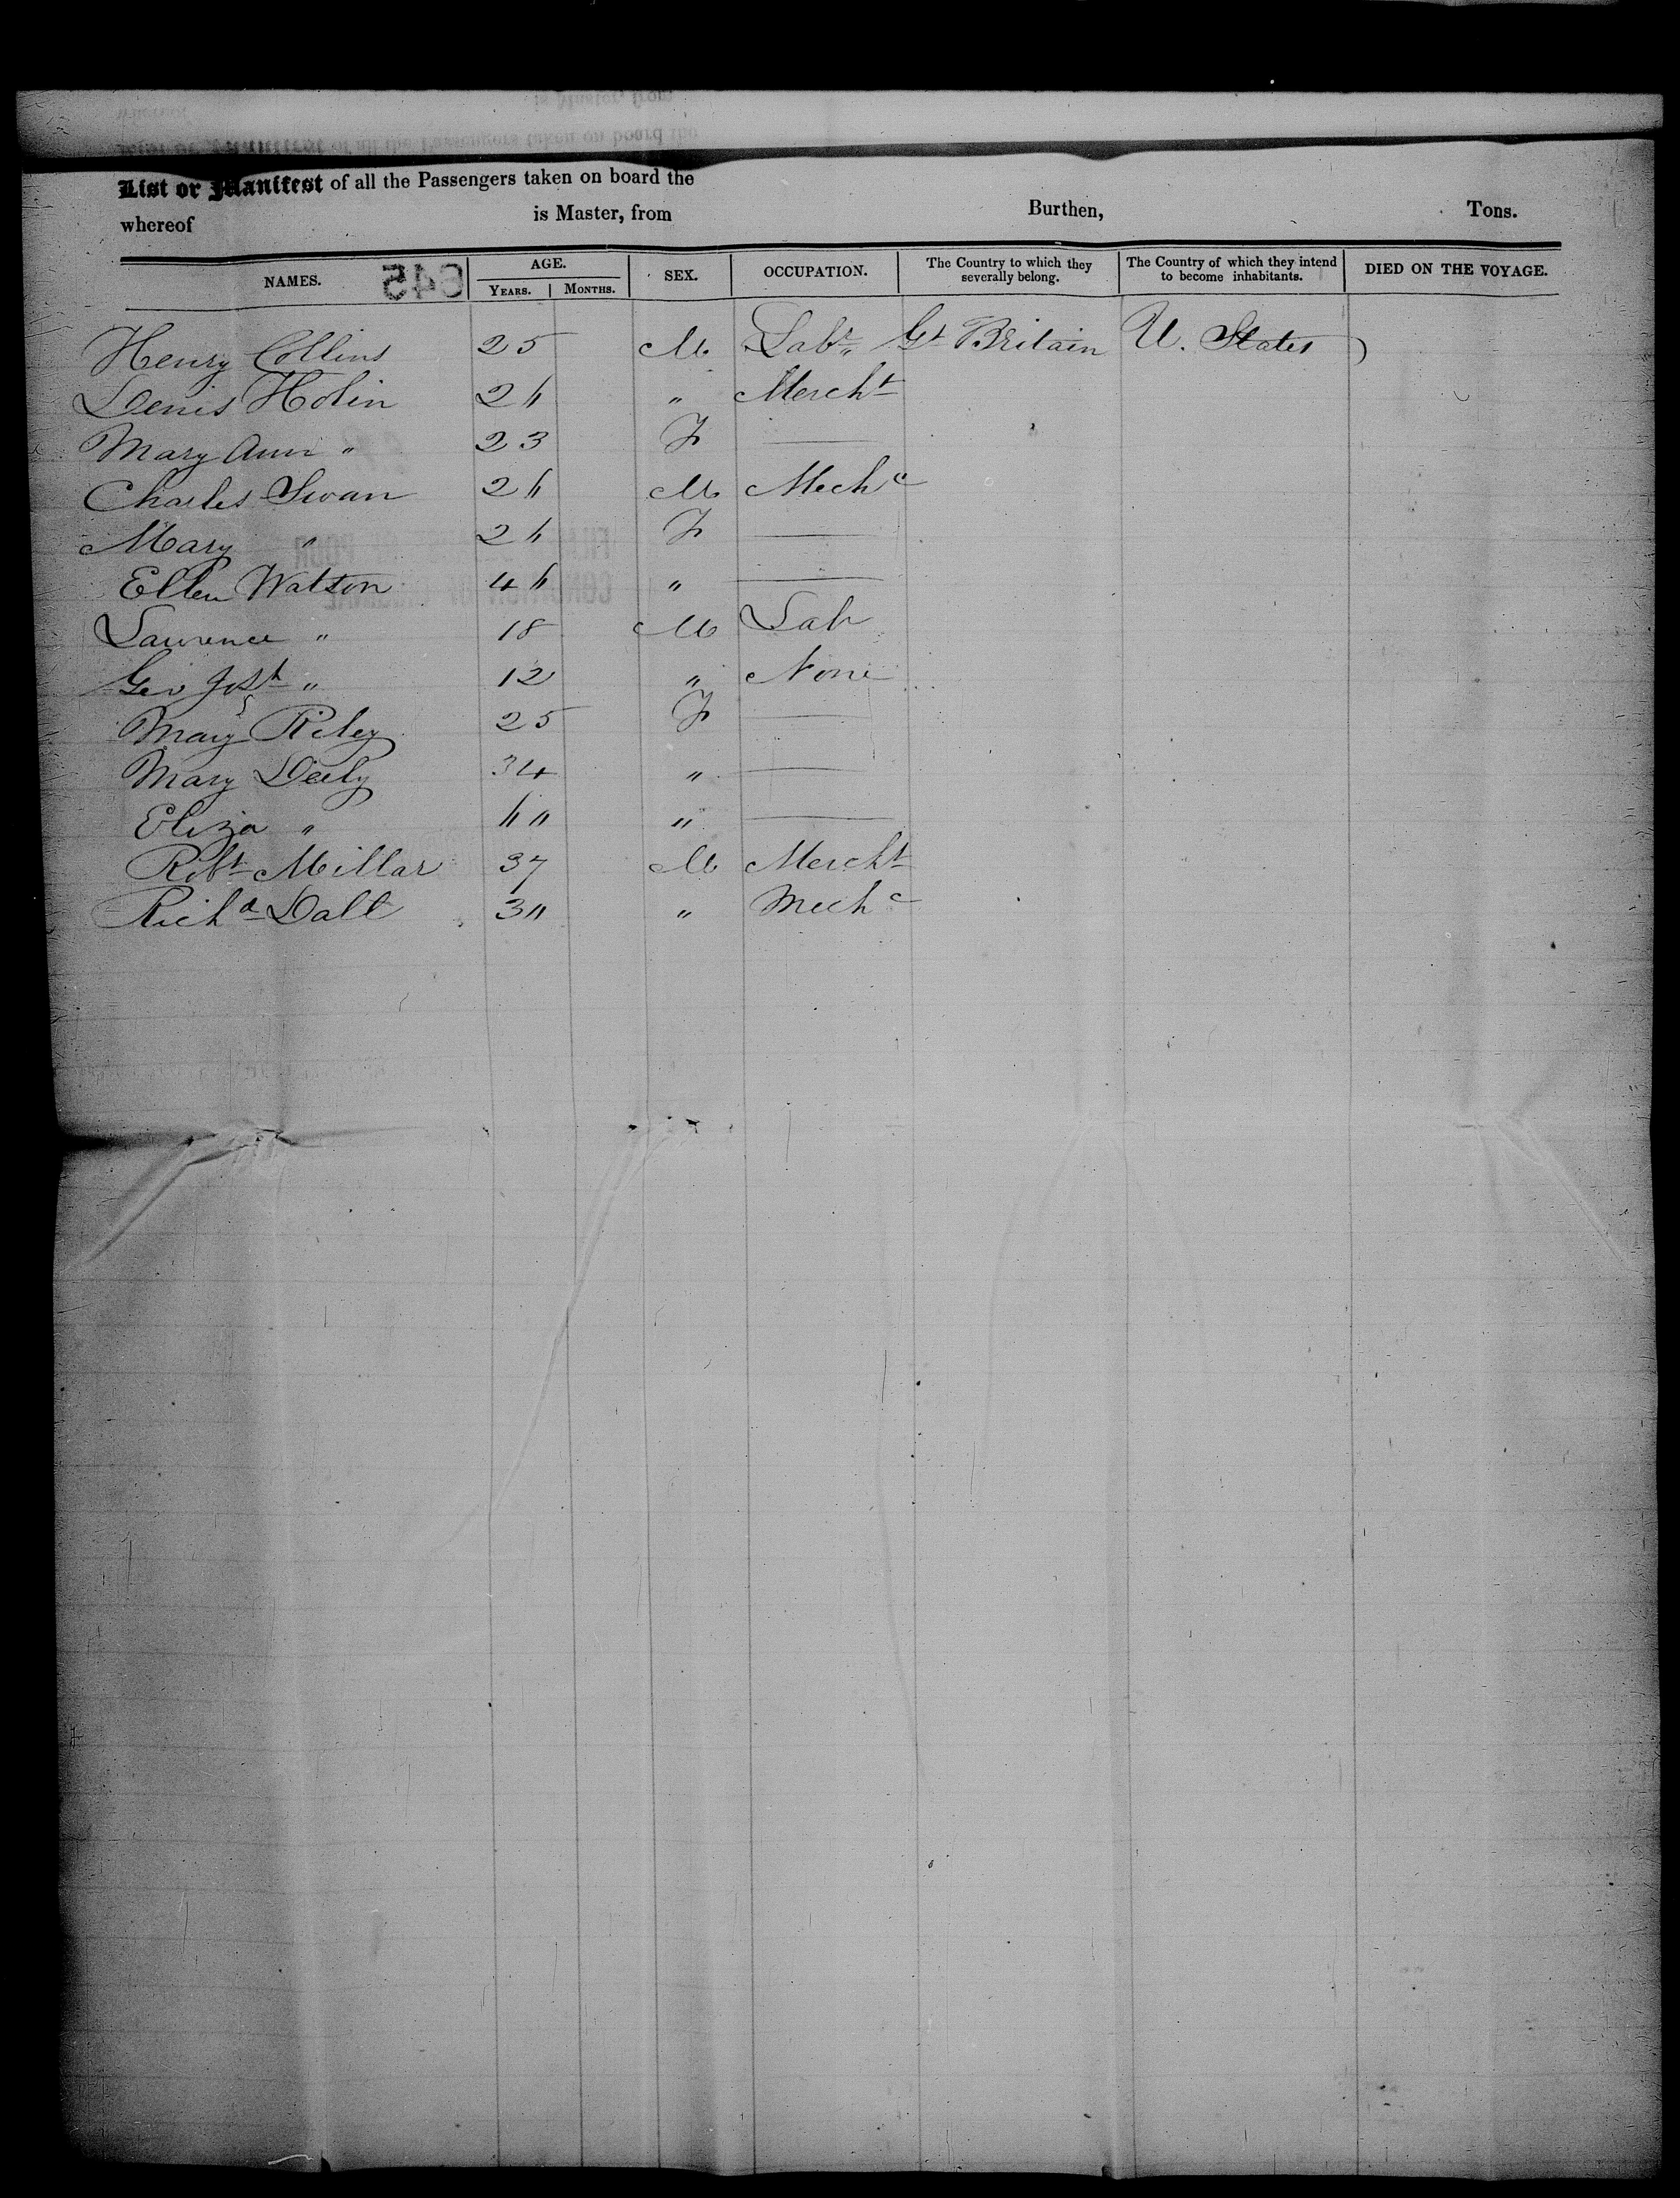 List or Manifest of all the Passengers taken on board the
whereof is Master, from Burthen, Tons.
NAMES. AGE. SEX. OCCUPATION. The Country to which they severally belong. The Country of which they intend to become inhabitants. DIED ON THE VOYAGE.
YEARS. MONTHS.
645
Henry Collins 25 M Labr Gt Britain U. States
Denis Holin 2 " " Mercht
Mary Ann " 23 F
Charles Swan 2 " M Mechc
Mary " 2 " F
Ellen Watson 4 " "
Lawrence " 18 M Lab
Geo Josh " 12 " None
Mary Riley 25 F
Mary Deely 34 "
Eliza " " "
Robt Millar 37 M Mercht
Richd Dalt 3 " " Mechc